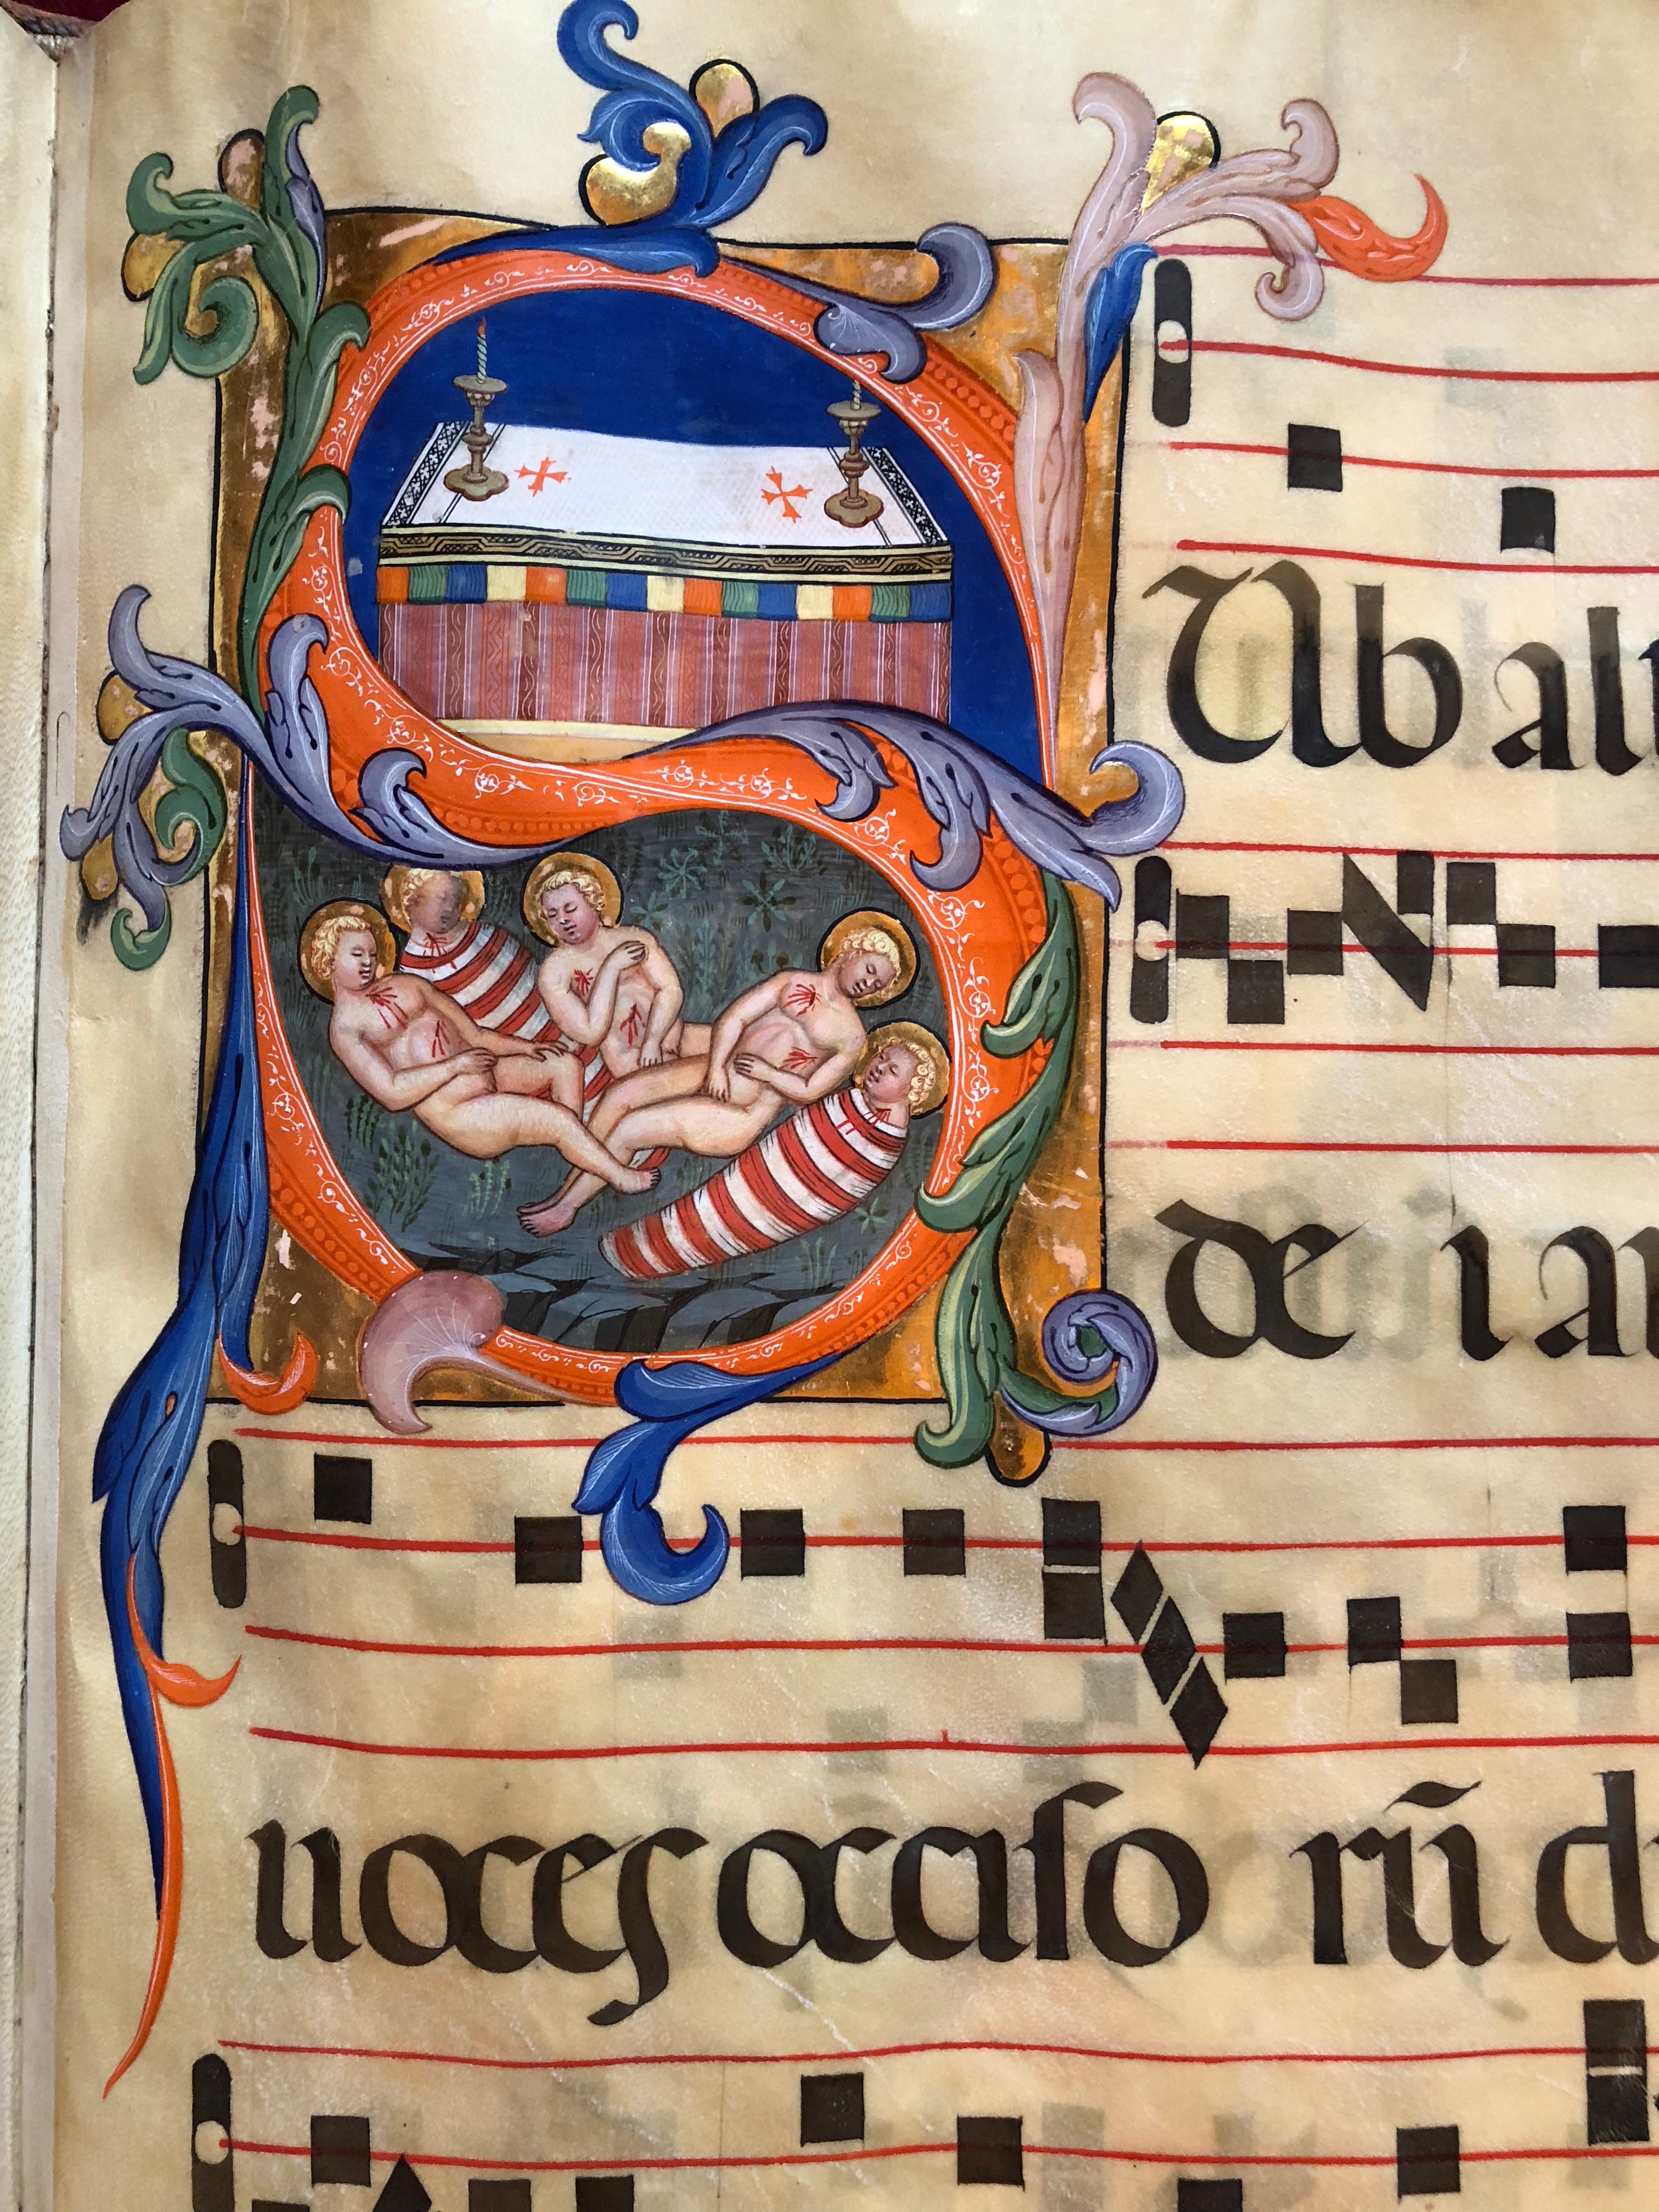 SUb al
de i a
uoces occiſo rū d